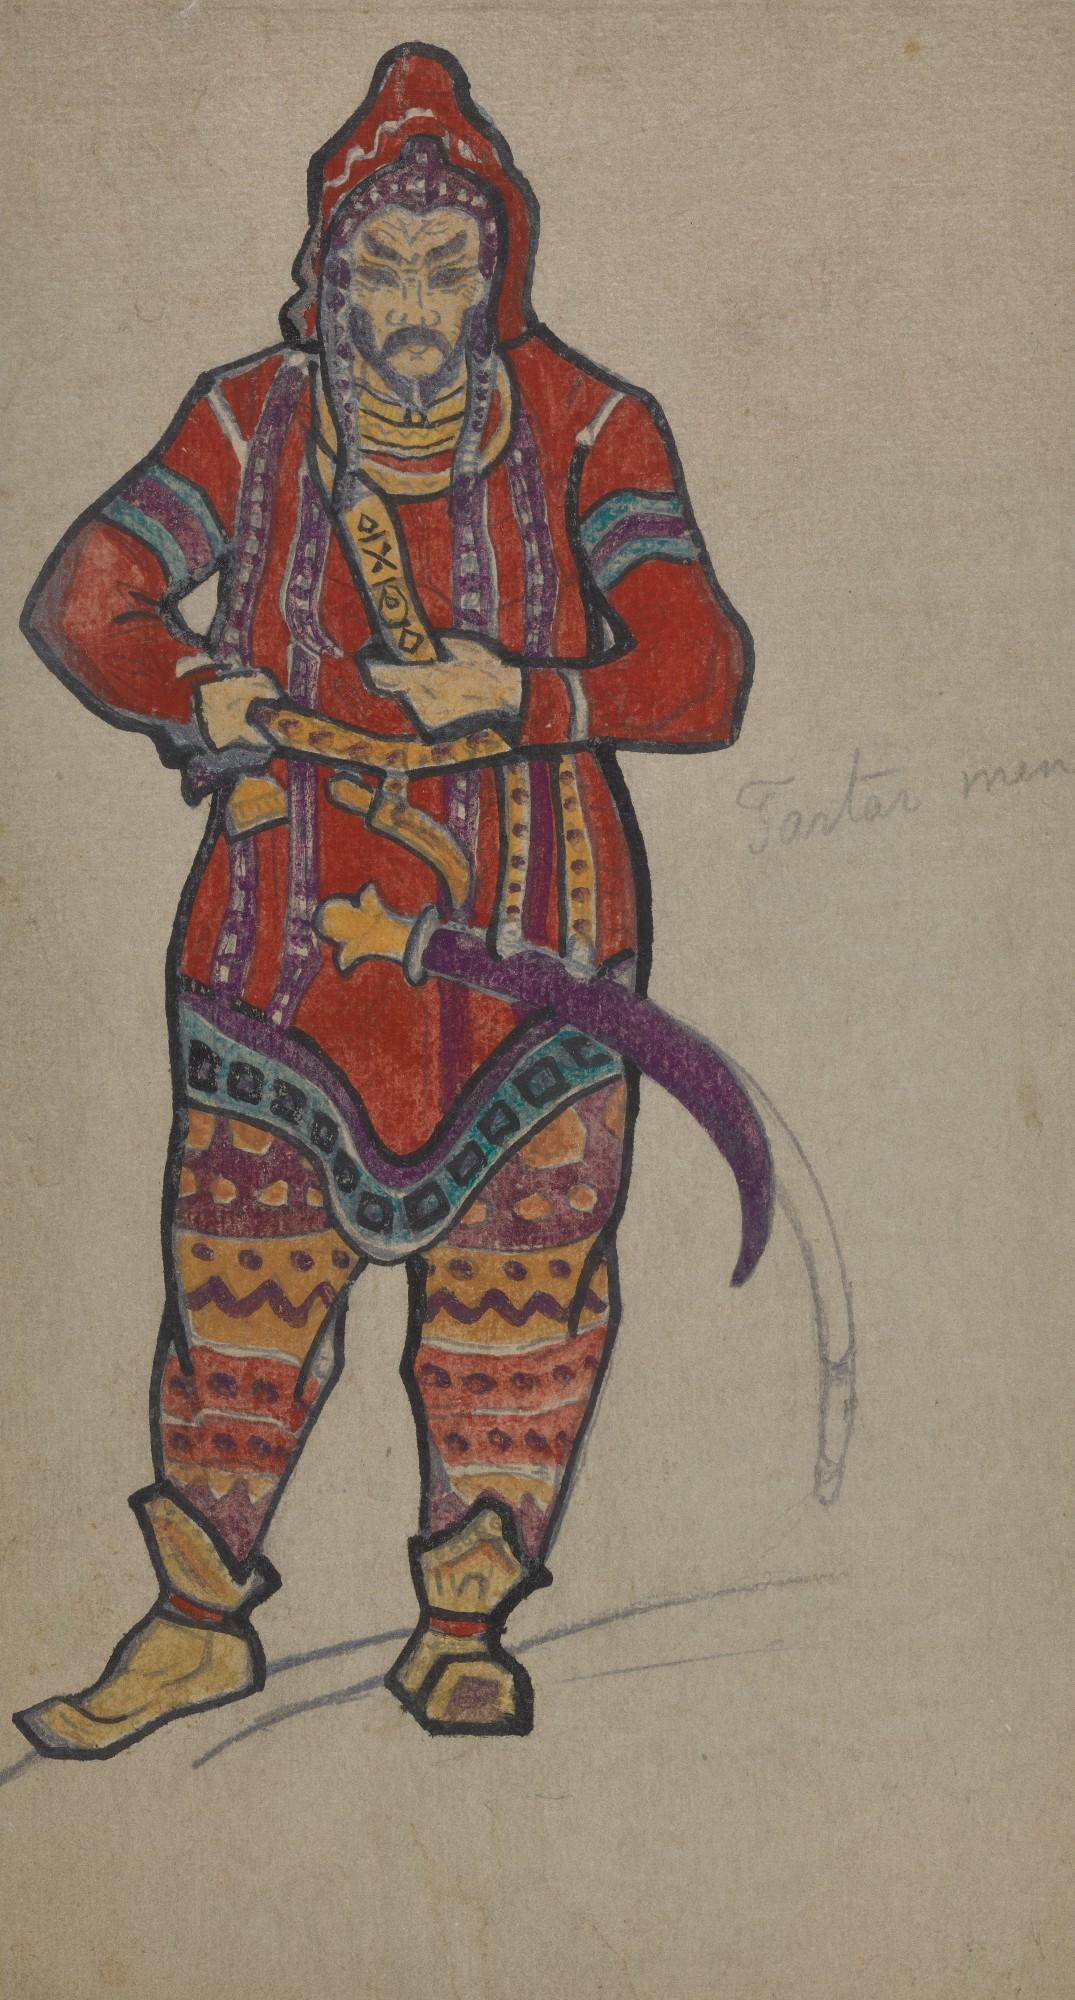 Tartar men